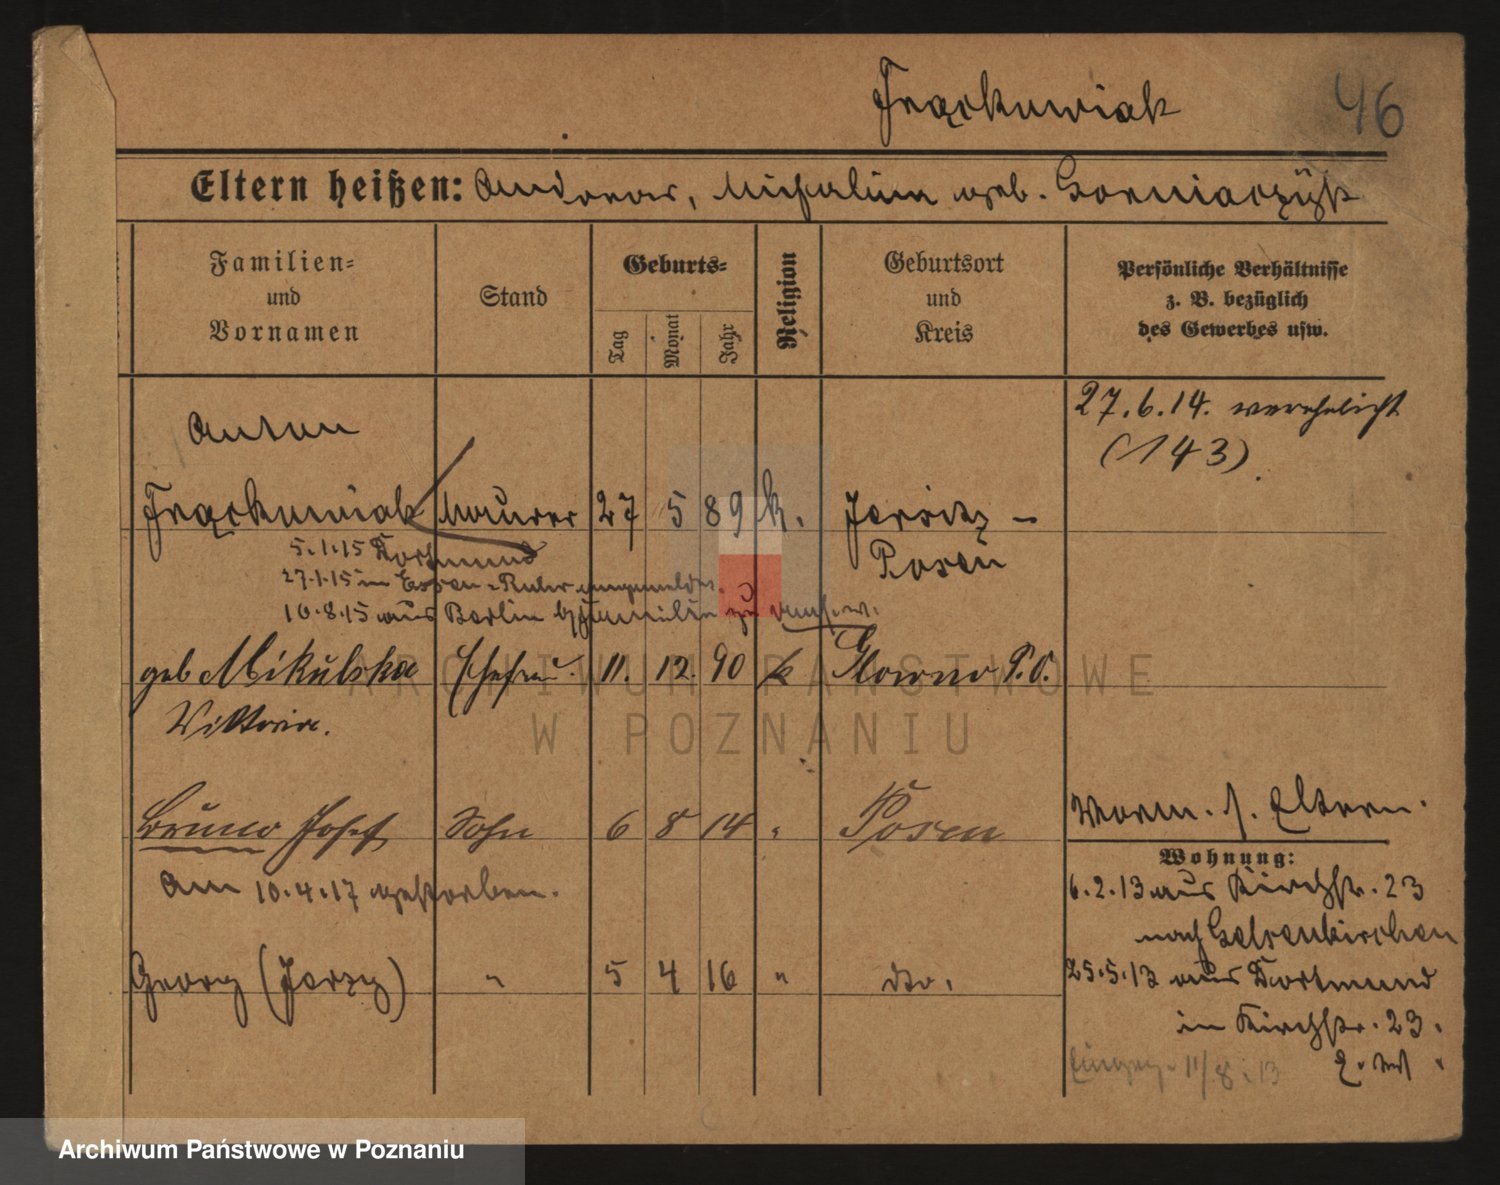 Frąckowiak 46
Eltern heißen: Andreas, Michalina geb. Gorniaczyk
Familien=
und
Vornamen
Stand
Geburts=
Tag
Monat
Jahr
Religion
Geburtsort
und
Kreis
Persönliche Verhältnisse
z. B. bezüglich
des Gewerbes usw.
27.6.14. verehelicht
(143).
Anton
Frąckowiak Maurer 27 5 89 k. Jersitz -
Posen
5.1.15 Dortmund
27.1.15 in Essen-Ruhr angemeldet.
10.8.15 aus Berlin
geb Mikulska Ehefrau. 11. 12. 90 k Glowno P.O.
Viktoria.
Bruno Josef Sohn 6 8 14 " Posen
Am 10.4.17 gestorben.
Georg (Jerzy) " 5 4 16 " dto.
Verm. s. Eltern.
Wohnung:
6.2.13 aus Kirchstr. 23
nach Gelsenkirchen
25.5.13 aus Dortmund
in Kirchstr. 23.
11/8.13
ARCHIWUM PAŃSTWOWE
W POZNANIU
Archiwum Państwowe w Poznaniu